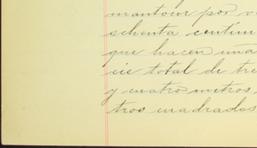 mantocor por v
schenta centim
que hacen una
cie total de tre
y cuatro metros,
tros cuadrados